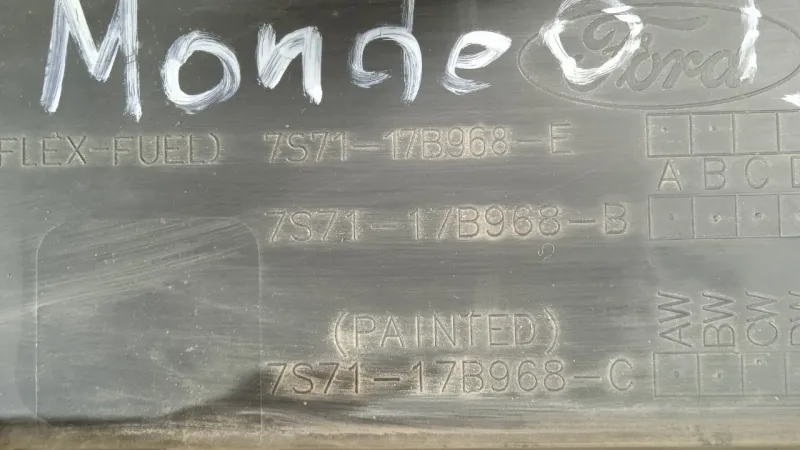 MondeO
Ford
FLEX-FUEL) 7S71-17B968-E
A B C
7S71-17B968-B
AW BW CW
(PAINTED)
7S71-17B968-C